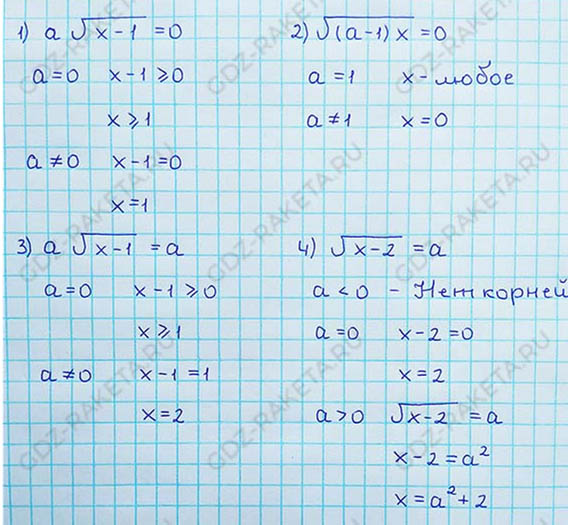 1) a √(x-1) = 0
a = 0 x - 1 ⩾ 0
x ⩾ 1
a ≠ 0 x - 1 = 0
x = 1
2) √((a-1)x) = 0
a = 1 x - любое
a ≠ 1 x = 0
3) a √(x-1) = a
a = 0 x - 1 ⩾ 0
x ⩾ 1
a ≠ 0 x - 1 = 1
x = 2
4) √(x-2) = a
a < 0 - Нет корней
a = 0 x - 2 = 0
x = 2
a > 0 √(x-2) = a
x - 2 = a²
x = a² + 2
GDZ-RAKETA.RU
GDZ-RAKETA.RU
GDZ-RAKETA.RU
GDZ-RAKETA.RU
GDZ-RAKETA.RU
GDZ-RAKETA.RU